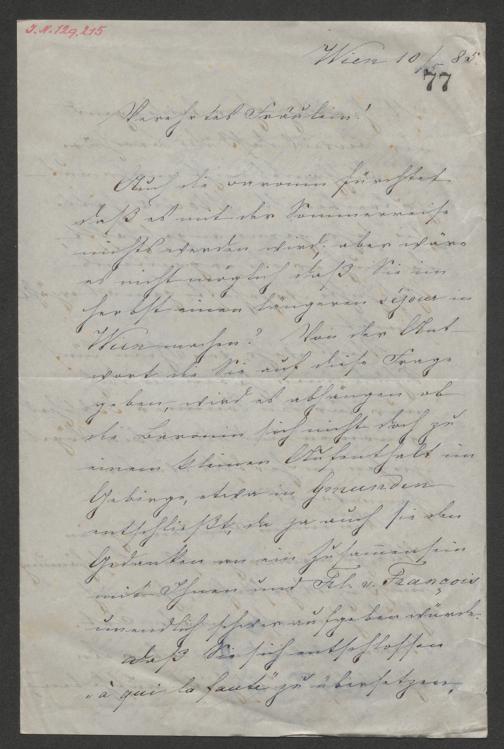 J.N. 129.215
Wien 10/5 85.
77
Verehrtes Fräulein!
Auch die Baronin fürchtet
daß es mit der Sommerreise
nichts werden wird; aber wäre
es nicht möglich daß Sie im
Herbst einen längeren Séjour in
Wien machen? Von der Ant-
wort die Sie auf diese Frage
geben, wird es abhängen ob
die Baronin sich nicht doch zu
einem kleinen Aufenthalt im
Gebirge, etwa in Gmunden
entschließt, da ja auch sie den
Gedanken an ein Zusammensein
mit Ihnen und Frl. v. François
unendlich schwer aufgeben würde.
Daß Sie sich entschlossen
„à qui la faute“ zu übersetzen,